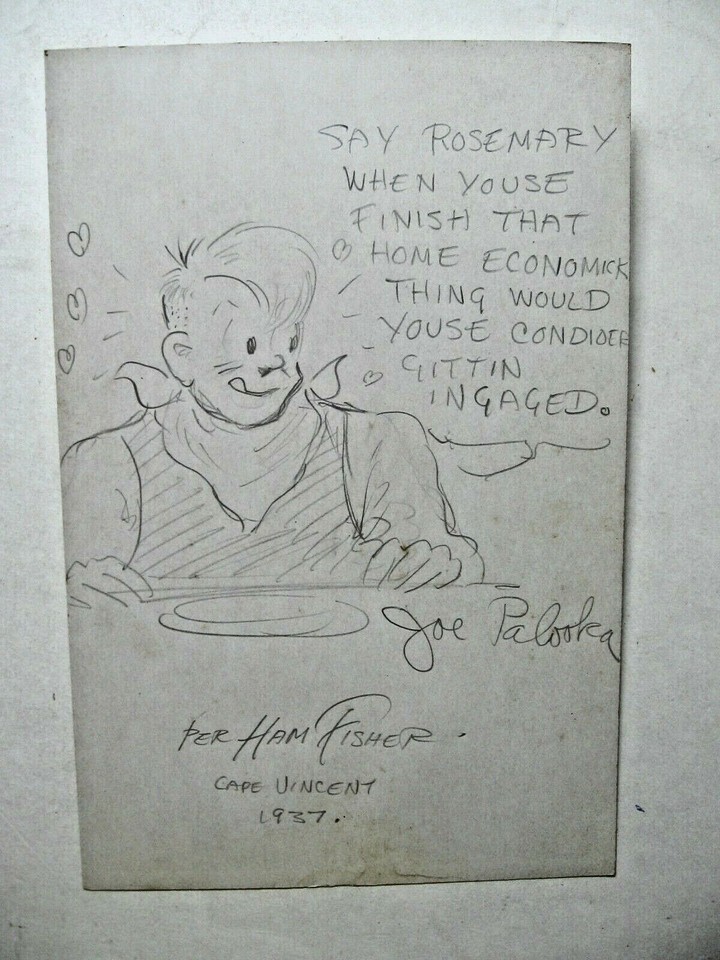 SAY ROSEMARY
WHEN YOUSE
FINISH THAT
HOME ECONOMICK
THING WOULD
YOUSE CONDIDER
GITTIN
INGAGED.
Joe Palooka
PER HAM FISHER.
CAPE VINCENT
1937.